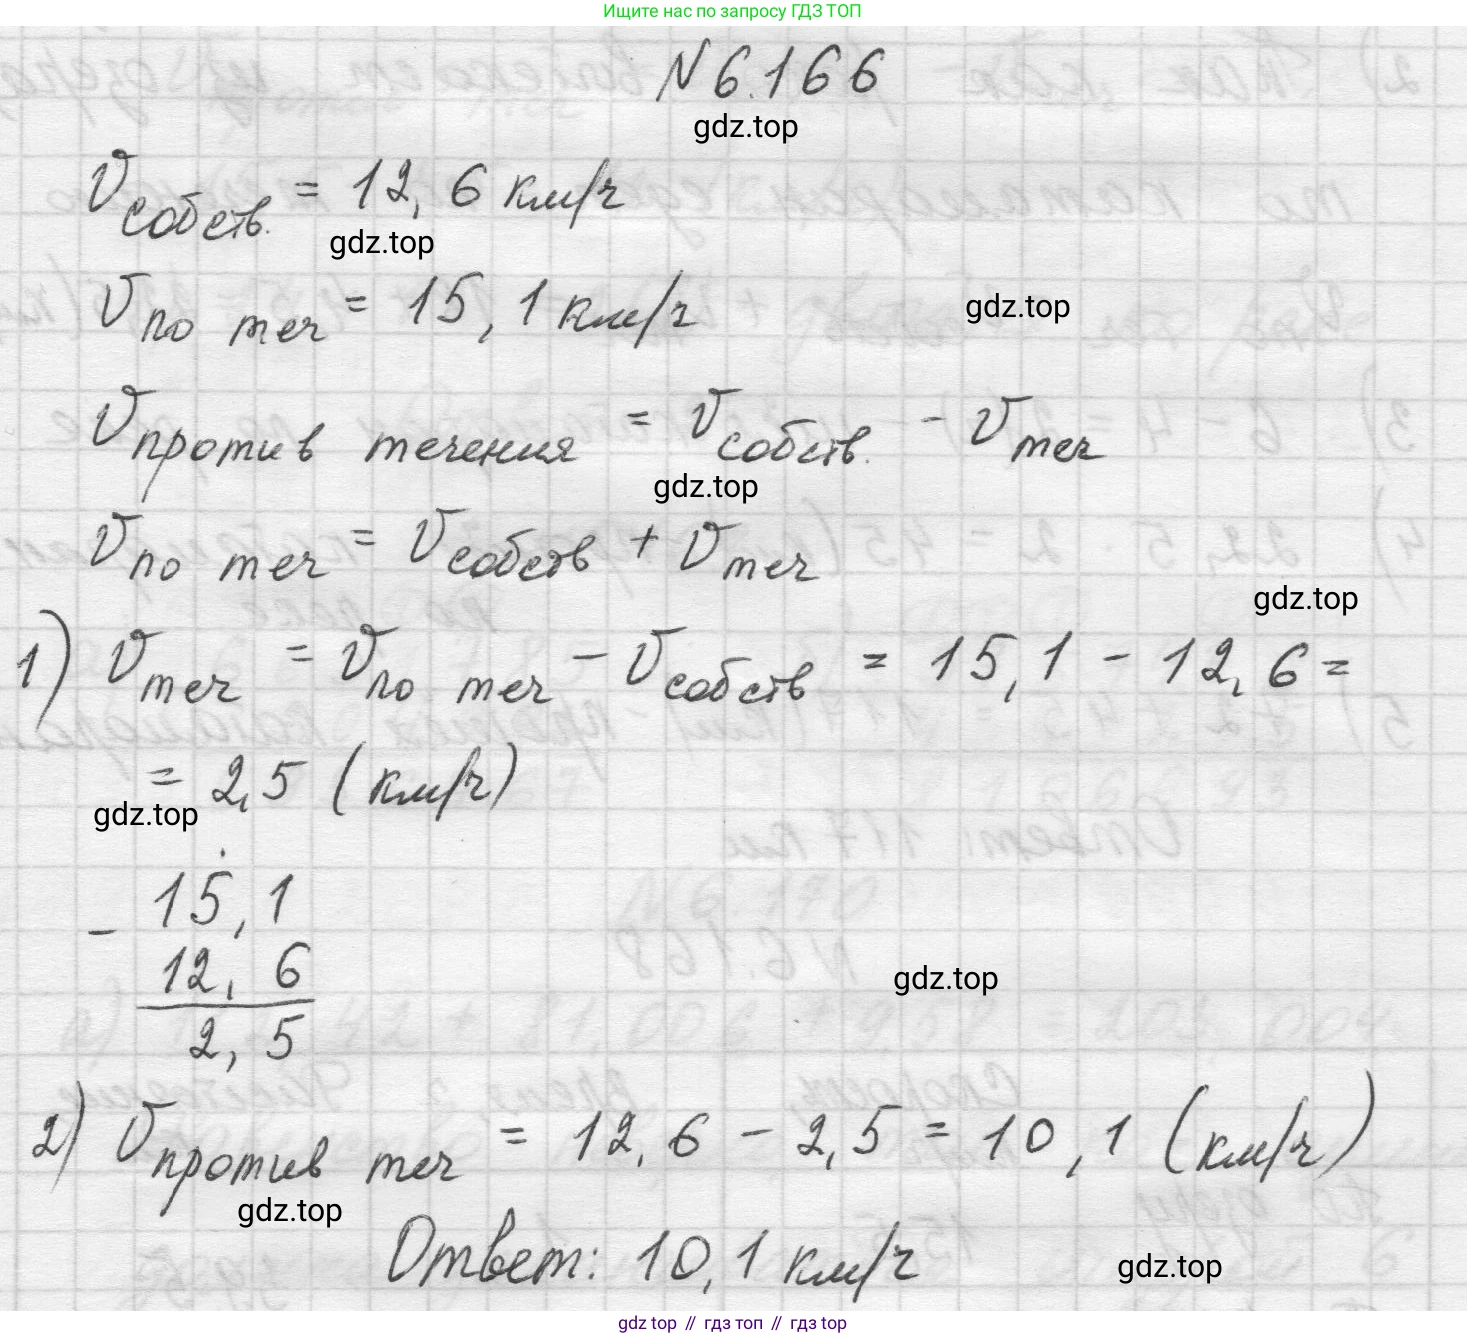 Ищите нас по запросу ГДЗ ТОП
№ 6.166
gdz.top
v собств. = 12,6 км/ч
gdz.top
v по теч = 15,1 км/ч
gdz.top
v против течения = v собств. - v теч
gdz.top
v по теч = v собств + v теч
gdz.top
1) v теч = v по теч - v собств = 15,1 - 12,6 =
= 2,5 (км/ч)
gdz.top
15,1
-
12,6
gdz.top
2,5
2) v против теч = 12,6 - 2,5 = 10,1 (км/ч)
gdz.top
Ответ: 10,1 км/ч
gdz.top
gdz top // гдз топ // гдз top